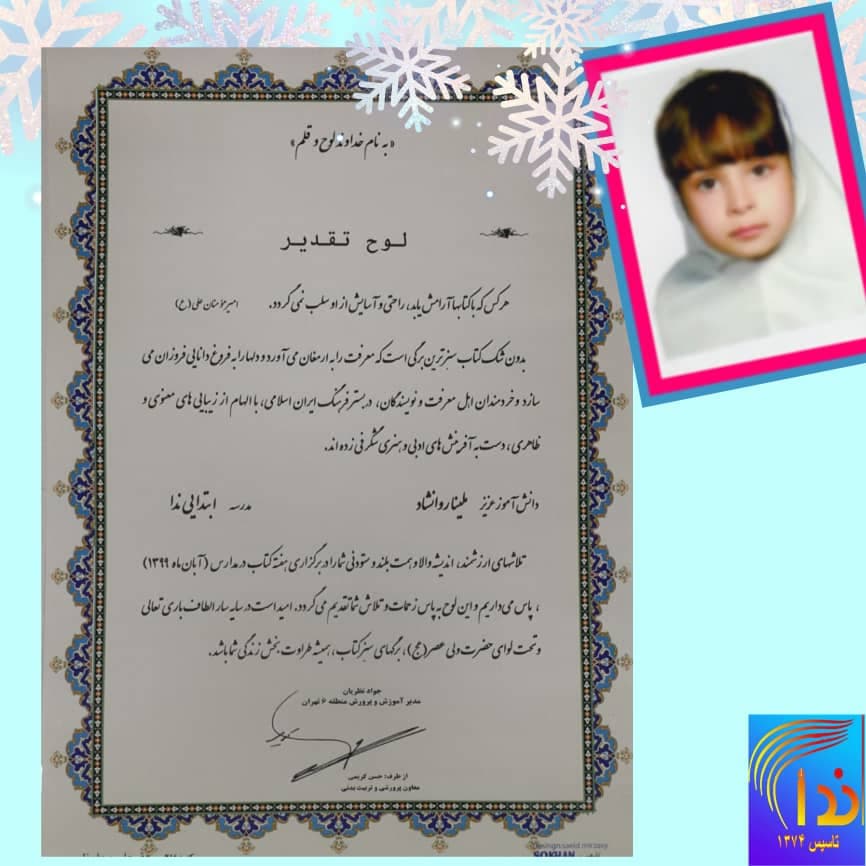 «به نام خداوند لوح و قلم»
لوح تقدیر
هر کس که با کتابها آرامش یابد، راحتی و آسایش از او سلب نمی گردد. امیرمؤمنان علی (ع)
بدون شک کتاب سبزترین برگی است که معرفت را به ارمغان می آورد و دلها را به فروغ دانایی فروزان می
سازد و خردمندان اهل معرفت و نویسندگان، در بستر فرهنگ ایران اسلامی، با الهام از زیبایی های معنوی و
ظاهری، دست به آفرینش های ادبی و هنری شگرفی زده اند.
دانش آموز عزیز ملینا روانشاد مدرسه ابتدایی ندا
تلاشهای ارزشمند، اندیشه والا و همت بلند و ستودنی شما را در برگزاری هفته کتاب در مدارس (آبان ماه ۱۳۹۹)
، پاس می داریم و این لوح به پاس زحمات و تلاش شما تقدیم می گردد. امید است در سایه سار الطاف باری تعالی
و تحت لوای حضرت ولی عصر (عج)، برگهای سبز کتاب، همیشه طراوت بخش زندگی شما باشد.
جواد نظریان
مدیر آموزش و پرورش منطقه ۶ تهران
از طرف: حسن کریمی
معاون پرورشی و تربیت بدنی
design.saeid mirzaey
SOKHAN
ندا
تاسیس ۱۳۷۴